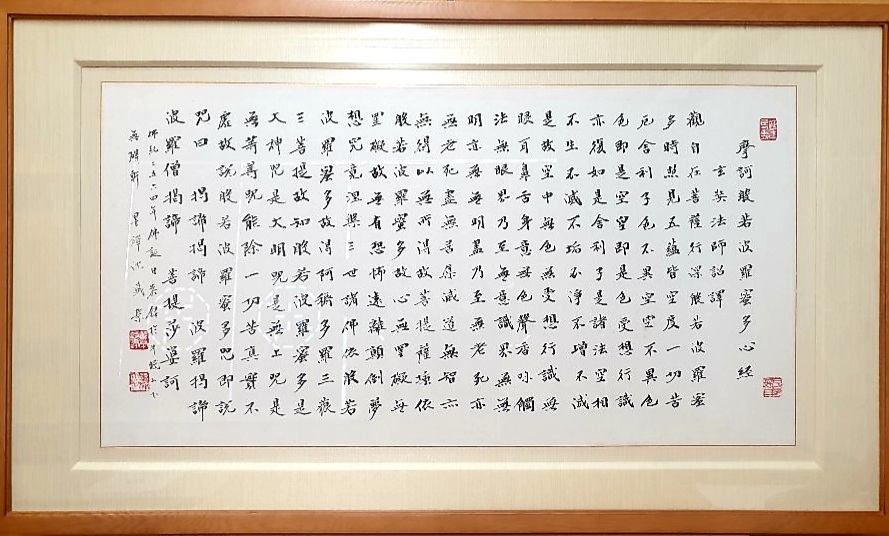 摩訶般若波羅蜜多心經
玄奘法師詔譯
觀自在菩薩行深般若波羅蜜
多時照見五蘊皆空度一切苦
厄舍利子色不異空空不異色
色即是空空即是色受想行識
亦復如是舍利子是諸法空相
不生不滅不垢不淨不增不減
是故空中無色無受想行識無
眼耳鼻舌身意無色聲香味觸
法無眼界乃至無意識界無無
明亦無無明盡乃至無老死亦
無老死盡無苦集滅道無智亦
無得以無所得故菩提薩埵依
般若波羅蜜多故心無罣礙無
罣礙故無有恐怖遠離顛倒夢
想究竟涅槃三世諸佛依般若
波羅蜜多故得阿耨多羅三藐
三菩提故知般若波羅蜜多是
大神咒是大明咒是無上咒是
無等等咒能除一切苦真實不
虛故說般若波羅蜜多咒即說
咒曰 揭諦揭諦 波羅揭諦
波羅僧揭諦 菩提莎婆訶
佛紀二五六四年佛誕日恭錄於